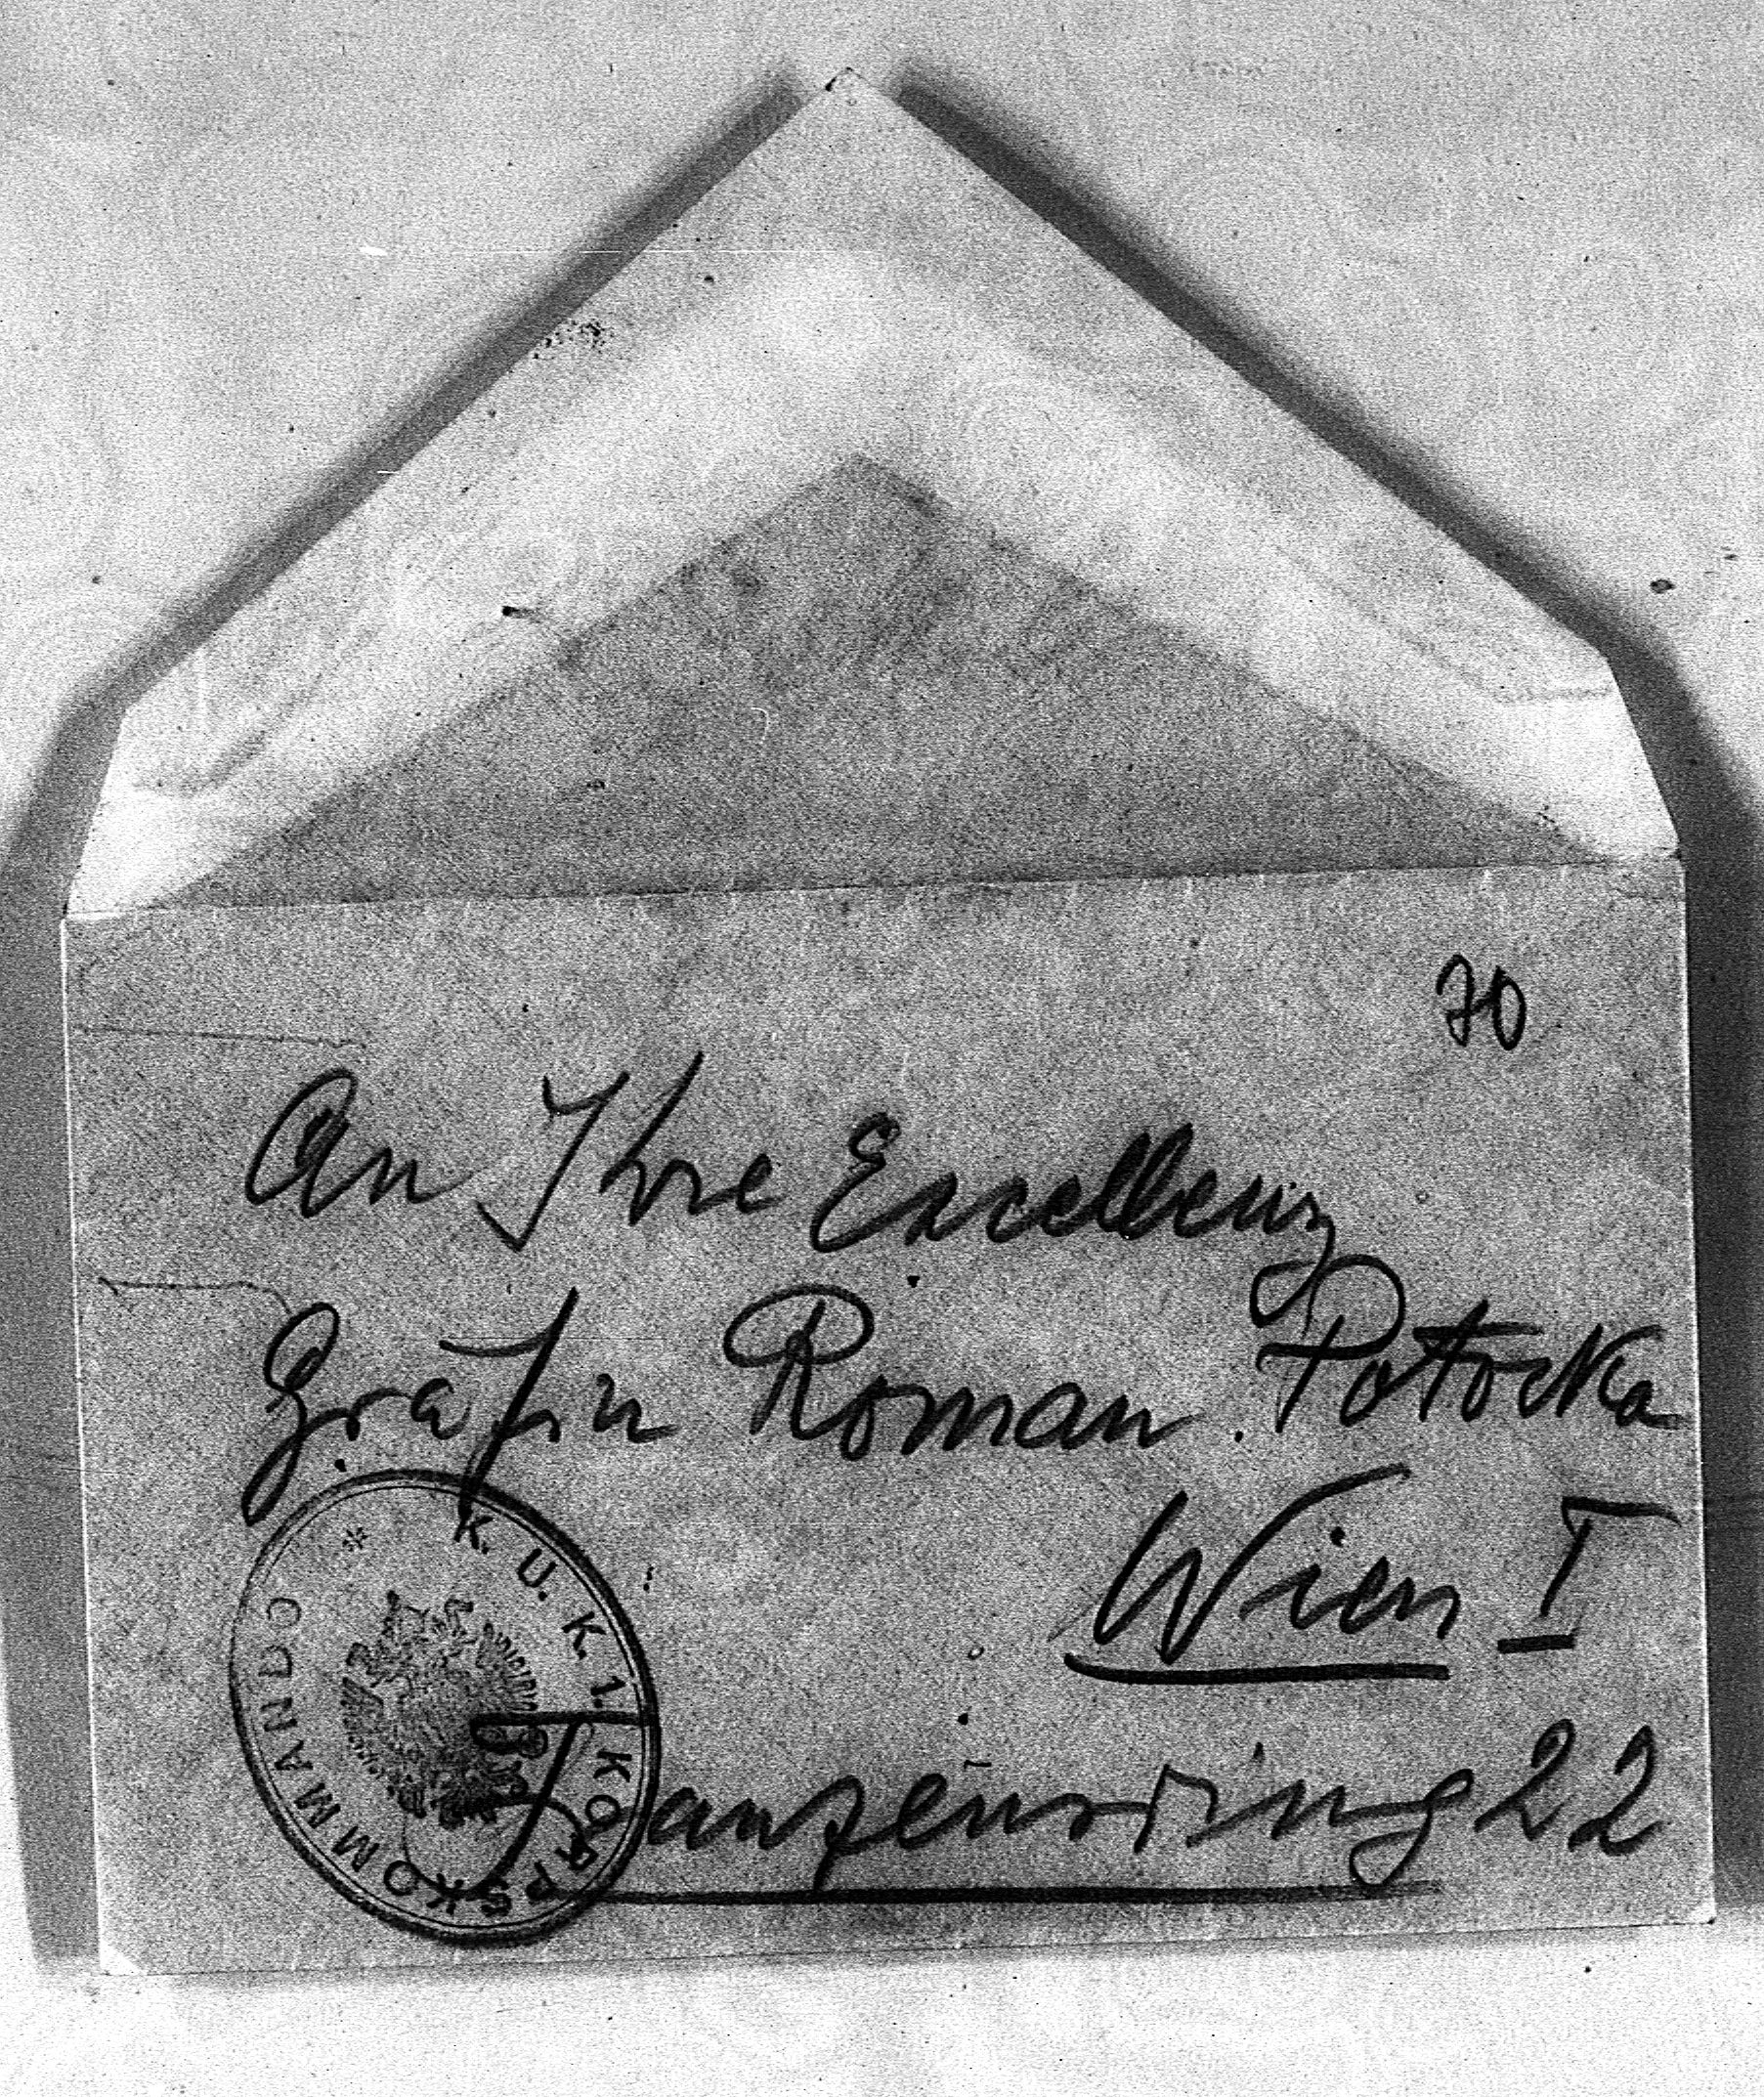 70
An Ihre Excellenz
Gräfin Roman Potocka
Wien I
K. U. K. 1. KORPSKOMMANDO
22